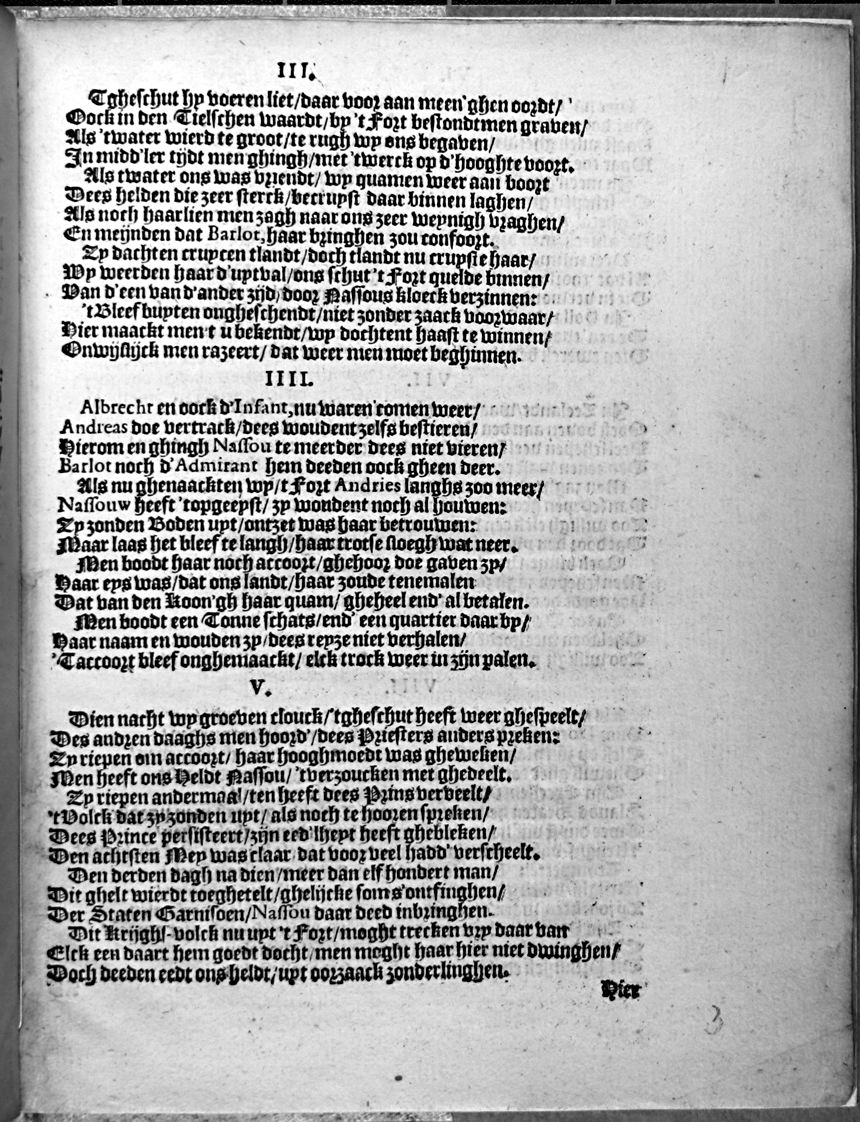 III.
Tgheschut hy voeren liet/daar voor aan meen'ghen oordt/
Oock in den Tielschen waardt/by 't Fort bestondtmen graven/
Als 'twater wierd te groot/te rugh wy ons begaven/
In midd'ler tijdt men ghingh/met 'twerck op d'hooghte voort.
Als twater ons was vriendt/wy quamen weer aan boort
Dees helden die zeer sterck/becrupst daar binnen laghen/
Als noch haarlien men zagh naar ons zeer weynigh vraghen/
En meijnden dat Barlot,haar bringhen zou confoort.
Zy dachten crupcen tlandt/doch tlandt nu crupste haar/
Wy weerden haar d'uytval/ons schut 't Fort quelde binnen/
Van d'een van d'ander zijd/door Nassous kloeck verzinnen:
't Bleef buyten ongheschendt/niet zonder zaack voorwaar/
Hier maackt men t u bekendt/wy dochtent haast te winnen/
Onwijslijck men razeert/dat weer men moet beghinnen.
IIII.
Albrecht en oock d'Infant,nu waren comen weer/
Andreas doe vertrack/dees woudent zelfs bestieren/
Hierom en ghingh Nassou te meerder dees niet vieren/
Barlot noch d'Admirant hem deeden oock gheen deer.
Als nu ghenaackten wy/t Fort Andries langhs zoo meer/
Nassouw heeft 'topgeeyst/zy wondent noch al houwen:
Zy zonden Boden uyt/ontzet was haar betrouwen:
Maar laas het bleef te langh/haar trotse sloegh wat neer.
Men boodt haar noch accoort/ghehoor doe gaven zy/
Haar eys was/dat ons landt/haar zoude tenemalen
Dat van den Koon'gh haar quam/gheheel end' al betalen.
Men boodt een Tonne schats/end' een quartier daar by/
Haar naam en wouden zy/dees reyze niet verhalen/
'Taccoort bleef onghemaackt/elck trock weer in zijn palen.
V.
Dien nacht wy groeven clouck/'tgheschut heeft weer ghespeelt/
Des andren daaghs men hoord'/dees Priesters anders preken:
Zy riepen om accoort/haar hooghmoedt was gheweken/
Men heeft ons Heldt Nassou/'tverzoucken met ghedeelt.
Zy riepen andermaal/ten heeft dees Prins verveelt/
't Volck dat zy zonden uyt/als noch te hooren spreken/
Dees Prince persisteert/zijn eed'lheyt heeft ghebleken/
Den achtsten Mey was claar dat voor veel hadd' verscheelt.
Den derden dagh na dien/meer dan elf hondert man/
Dit ghelt wierdt toeghetelt/ghelijcke som s'ontfinghen/
Der Staten Garnisoen/Nassou daar deed inbringhen.
Dit Krijghs-volck nu uyt 't Fort/moght trecken vry daar van
Elck een daart hem goedt docht/men moght haar hier niet dwinghen/
Doch deeden eedt ons heldt/uyt oorzaack zonderlinghen.
Hier
3